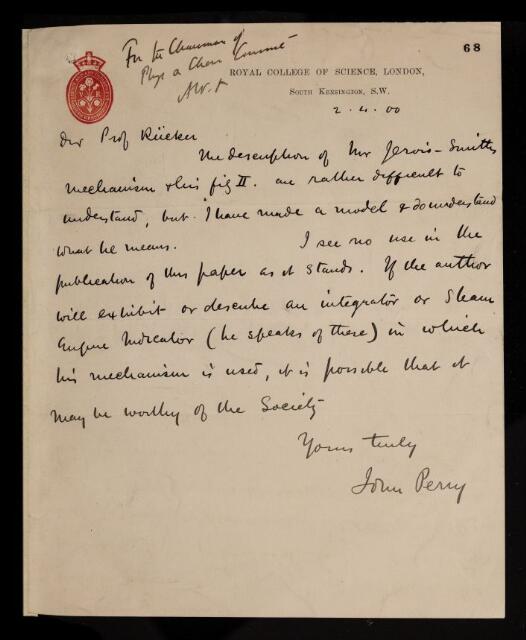 68
For the Chairman of
Phys & Chem Committ
AWR
ROYAL COLLEGE OF SCIENCE, LONDON,
SOUTH KENSINGTON, S.W.
2.4.00
Dear Prof Rücker
The description of Mr Jervis-Smith's
mechanism & his fig II. are rather difficult to
understand, but I have made a model & do understand
what he means. I see no use in the
publication of this paper as it stands. If the author
will exhibit or describe an integrator or Steam
Engine Indicator (he speaks of these) in which
his mechanism is used, it is possible that it
may be worthy of the Society
Yours truly
John Perry